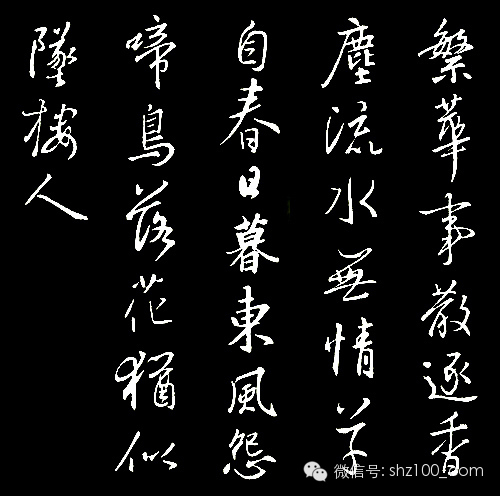 繁華事散逐香
塵流水無情草
自春日暮東風怨
啼鳥落花猶似
墜樓人
微信号: shz100_com